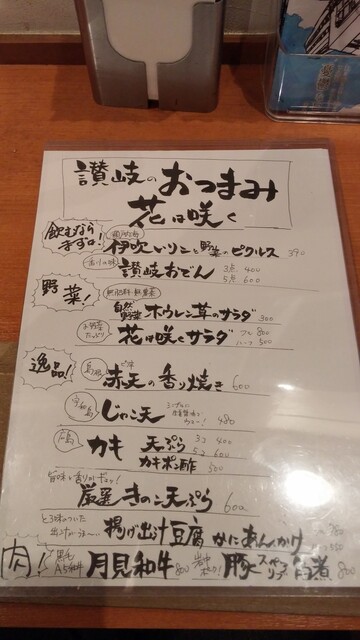 讃岐のおつまみ
花は咲く
飲むなら
まずは!
伊吹いりこと野菜のピクルス 390
香川の味
讃岐おでん 3点 400
5点 600
野菜!
無肥料・無農薬
自然野菜 ホウレン草のサラダ 300
お野菜たっぷり
花は咲くサラダ フル 800
ハーフ 500
逸品!
赤天の香り焼き 600
宇和島
じゃこ天
480
広島
カキ 天ぷら 3コ 400
5コ 600
カキポン酢 500
厳選きのこ天ぷら 600
揚げ出汁豆腐 かにあんかけ
肉!
黒毛A5和牛 月見和牛 800
豚スペアリブ角煮 800